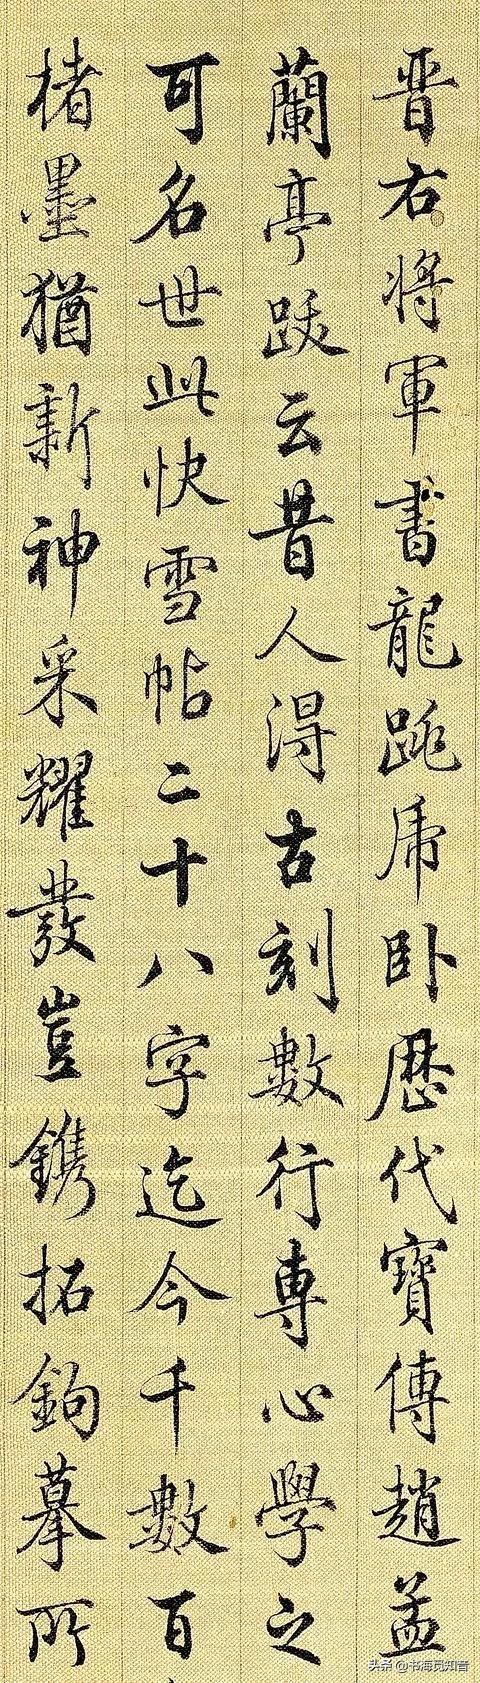 晋右将軍書龍跳虎卧歴代寳傳趙孟
蘭亭跋云昔人得古刻數行専心學之
可名世此快雪帖二十八字迄今千數百
楮墨猶新神采耀發豈鐫拓鉤摹所
头条 @书海员知音